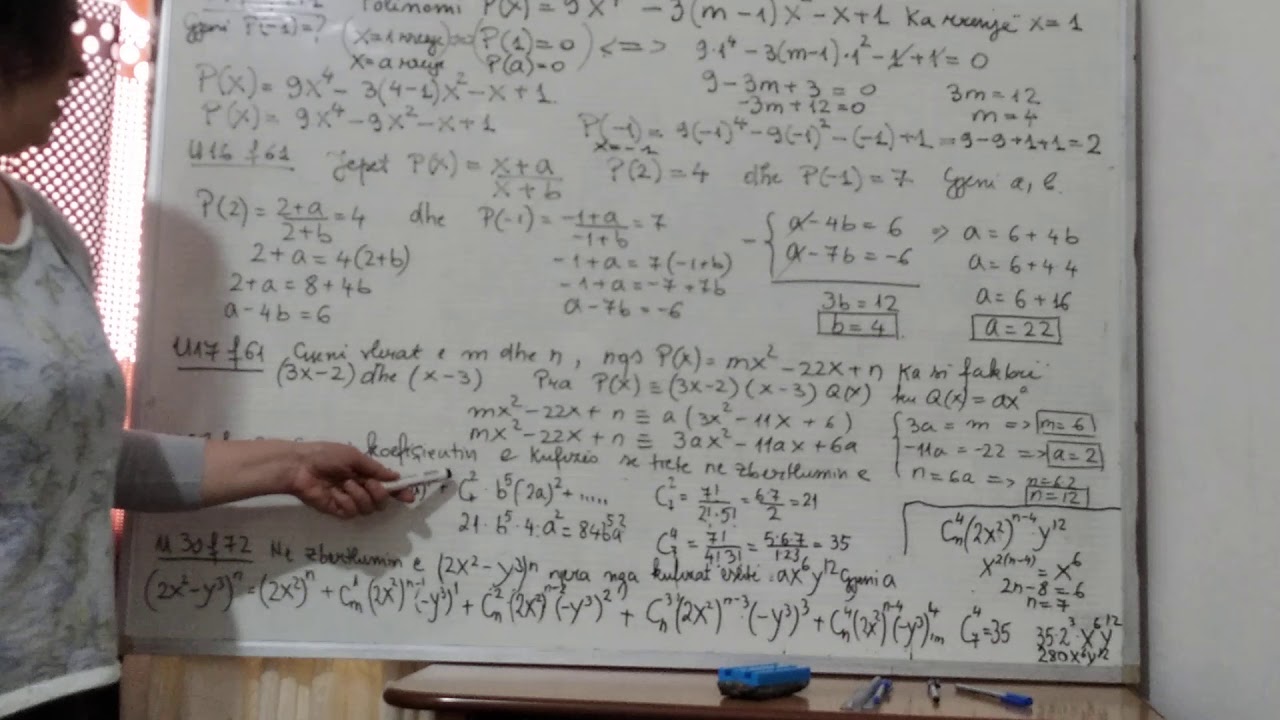 Polinomi P(x) = 9x⁴ - 3(m-1)x² - x + 1 Ka rrenjë x = 1
Gjeni P(-1) = ? (x=1 rrenje => P(1) = 0) <=> 9·1⁴ - 3(m-1)·1² - 1 + 1 = 0
x=a rrenje P(a)=0
9 - 3m + 3 = 0 3m = 12
P(x) = 9x⁴ - 3(4-1)x² - x + 1
-3m + 12 = 0 m = 4
P(x) = 9x⁴ - 9x² - x + 1
P(-1) = 9(-1)⁴ - 9(-1)² - (-1) + 1 = 9-9+1+1 = 2
x=-1
U16 f61 Jepet P(x) = x+a / x+b P(2) = 4 dhe P(-1) = 7 Gjeni a, b.
P(2) = 2+a / 2+b = 4 dhe P(-1) = -1+a / -1+b = 7
2+a = 4(2+b) -1+a = 7(-1+b)
2+a = 8+4b -1+a = -7+7b
a-4b = 6 a-7b = -6
- { a-4b = 6 => a = 6+4b
a-7b = -6 a = 6+4·4
3b = 12 a = 6+16
b = 4 a = 22
U17 f61 Gjeni vlerat e m dhe n, nqs P(x) = mx² - 22x + n Ka si faktori
(3x-2) dhe (x-3) Pra P(x) ≡ (3x-2)(x-3) Q(x) ku Q(x) = ax⁰
mx² - 22x + n ≡ a(3x² - 11x + 6)
mx² - 22x + n ≡ 3ax² - 11ax + 6a
{ 3a = m => m = 6
-11a = -22 => a = 2
n = 6a => n = 6·2
n = 12
koeficientin e kufizës se trete ne zberthimin e
C₇² · b⁵(2a)² + ..... C₇² = 7! / 2!·5! = 6·7 / 2 = 21
21 · b⁵ · 4 · a² = 84b⁵a² C₇⁴ = 7! / 4!3! = 5·6·7 / 1·2·3 = 35
Cₙ⁴(2x²)ⁿ⁻⁴ y¹²
x²⁽ⁿ⁻⁴⁾ = x⁶
2n-8 = 6
n = 7
U 30 f72 Ne zberthimin e (2x² - y³)ⁿ njera nga kufizat eshte ax⁶y¹² Gjeni a
(2x²-y³)ⁿ = (2x²)ⁿ + Cₙ¹(2x²)ⁿ⁻¹(-y³)¹ + Cₙ²(2x²)ⁿ⁻²(-y³)² + Cₙ³(2x²)ⁿ⁻³·(-y³)³ + Cₙ⁴(2x²)ⁿ⁻⁴(-y³)⁴ C₇⁴ = 35 35·2³·x⁶y¹²
280x⁶y¹²